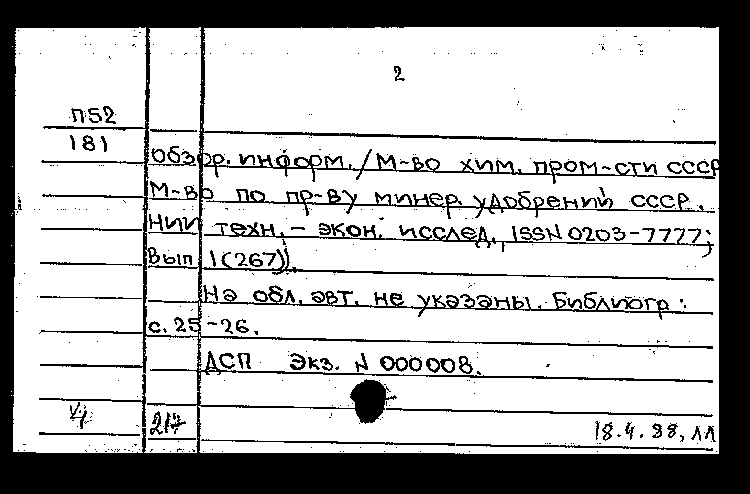 2
П52
181
Обзор. информ. / М-во хим. пром-сти СССР
М-во по пр-ву минер. удобрений СССР.
НИИ техн.- экон. исслед., ISSN 0203-7777;
Вып 1(267)).
На обл. авт. не указаны. Библиогр.:
с. 25-26.
ДСП Экз. N 000008.
217 18.4.88, ЛЛ